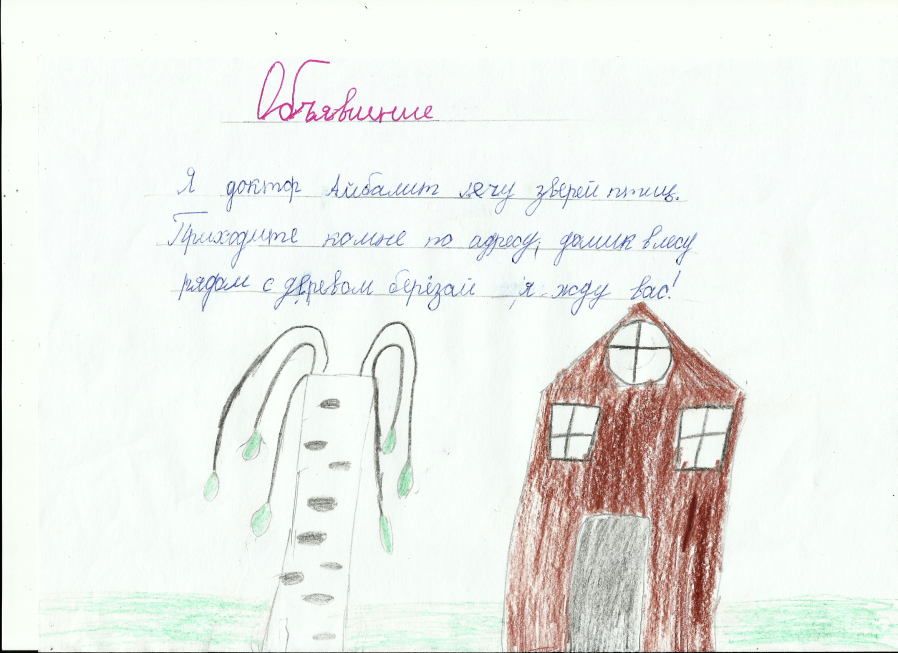 Объявление
Я доктор Айбалит лечу зверей птиц.
Приходите комне по адресу, домик влесу
рядом с деревом берёзай я жду вас!